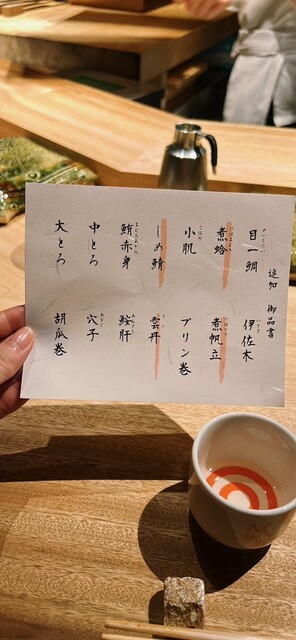 追加 御品書
目一鯛 伊佐木
煮蛤 煮帆立
小肌 プリン巻
しめ鯖 雲丹
鮪赤身 鮟肝
中とろ 穴子
大とろ 胡瓜巻